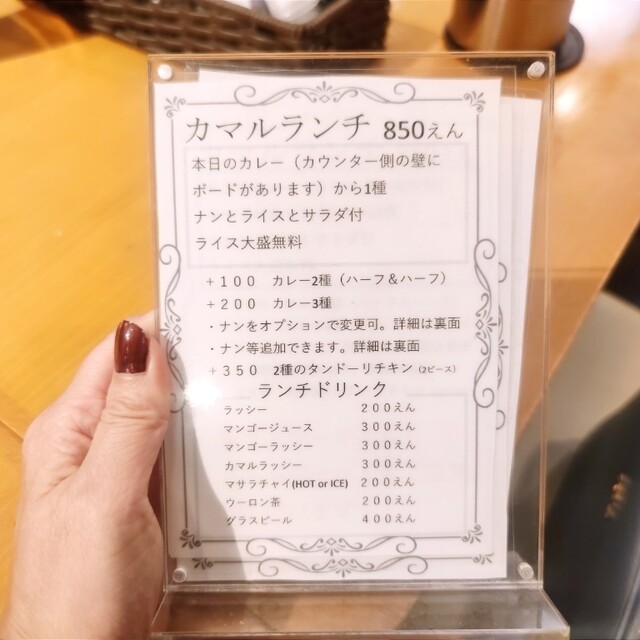 カマルランチ 850えん
本日のカレー（カウンター側の壁に
ボードがあります）から1種
ナンとライスとサラダ付
ライス大盛無料
＋１００ カレー2種（ハーフ＆ハーフ）
＋２００ カレー3種
・ナンをオプションで変更可。詳細は裏面
・ナン等追加できます。詳細は裏面
＋３５０ 2種のタンドーリチキン（2ピース）
ランチドリンク
ラッシー ２００えん
マンゴージュース ３００えん
マンゴーラッシー ３００えん
カマルラッシー ３００えん
マサラチャイ(HOT or ICE) ２００えん
ウーロン茶 ２００えん
グラスビール ４００えん